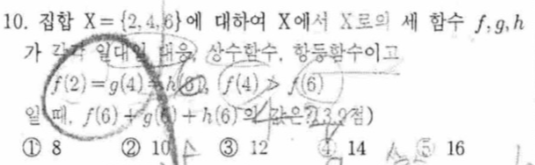 10. 집합 X={2,4,6}에 대하여 X에서 X로의 세 함수 f,g,h
가 각각 일대일 대응, 상수함수, 항등함수이고
f(2)=g(4)=h(6), f(4) > f(6)
일 때, f(6)+g(6)+h(6)의 값은?
① 8 ② 10 ③ 12 ④ 14 ⑤ 16